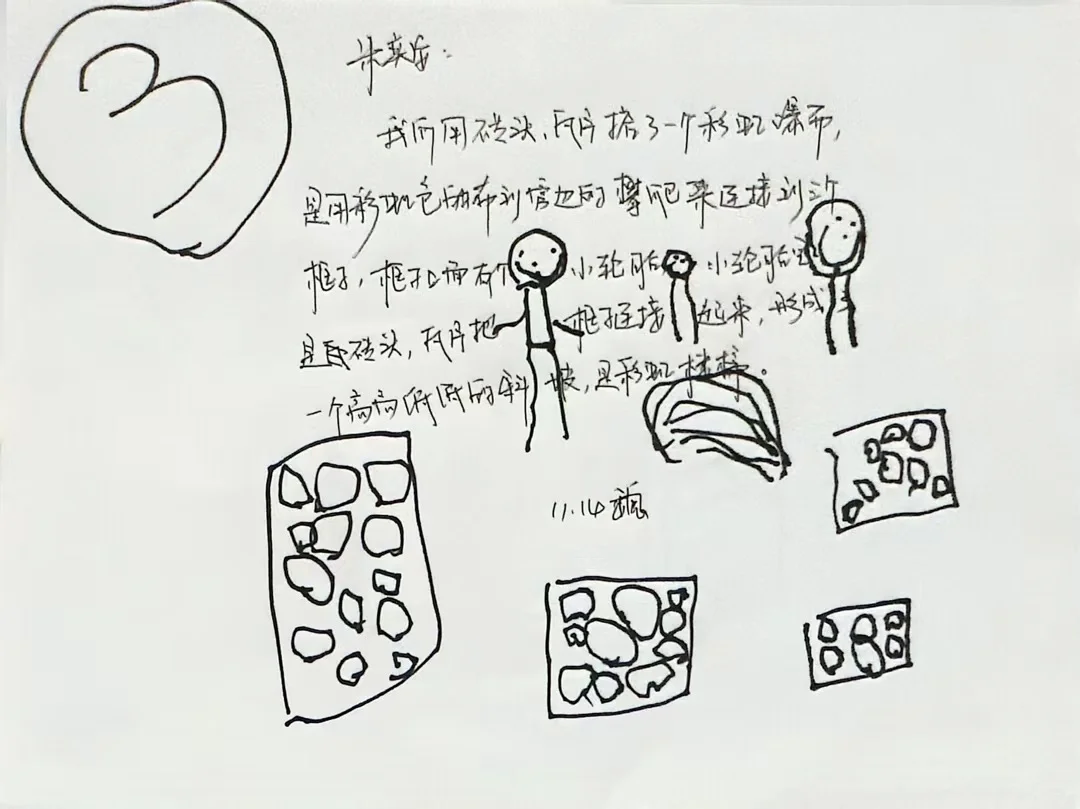 3
朱奕乐：
我们用砖头、瓦片搭了一个彩虹瀑布，
是用彩虹色的布到旁边的攀爬架连接到沙
框子，框子里面有个小轮胎，小轮胎
是砖头、瓦片把框子连接起来，形成
一个高高低低的斜坡，是彩虹楼梯。
11.14